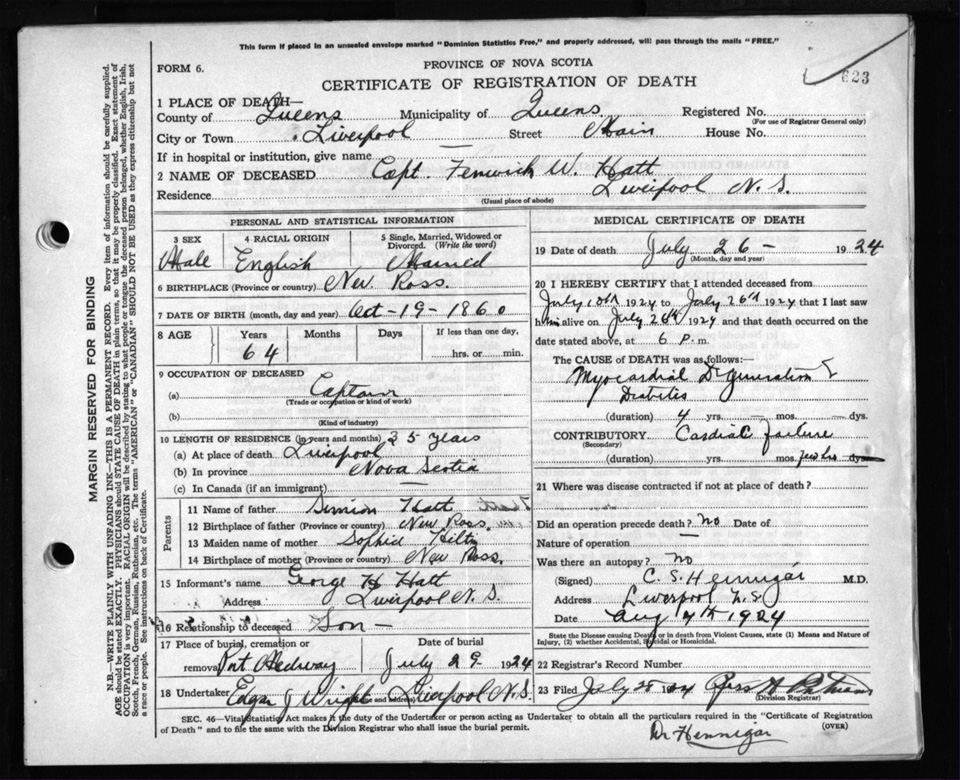 This form if placed in an unsealed envelope marked "Dominion Statistics Free," and properly addressed, will pass through the mails "FREE."
PROVINCE OF NOVA SCOTIA
FORM 6.
CERTIFICATE OF REGISTRATION OF DEATH
623
1 PLACE OF DEATH—
County of Queens Municipality of Queens Registered No.
(For use of Registrar General only)
City or Town Liverpool Street Main House No.
If in hospital or institution, give name —
2 NAME OF DECEASED Capt. Fenwick W. Hatt
Residence Liverpool N.S.
(Usual place of abode)
PERSONAL AND STATISTICAL INFORMATION
3 SEX 4 RACIAL ORIGIN 5 Single, Married, Widowed or Divorced. (Write the word)
Male English Married
6 BIRTHPLACE (Province or country) New Ross.
7 DATE OF BIRTH (month, day and year) Oct-19-1860
8 AGE Years Months Days If less than one day,
64 hrs. or min.
9 OCCUPATION OF DECEASED
(a) Captain
(Trade or occupation or kind of work)
(b)
(Kind of industry)
10 LENGTH OF RESIDENCE (in years and months) 35 years
(a) At place of death Liverpool
(b) In province Nova Scotia
(c) In Canada (if an immigrant) —
Parents
11 Name of father Simion Hatt
12 Birthplace of father (Province or country) New Ross.
13 Maiden name of mother Sophia
14 Birthplace of mother (Province or country) New Ross.
15 Informant's name George H Hatt
Address Liverpool N.S.
16 Relationship to deceased Son —
17 Place of burial, cremation or removal Port Medway Date of burial July 29 1924
18 Undertaker Edgar J Wright (Name and address) Liverpool N.S.
MEDICAL CERTIFICATE OF DEATH
19 Date of death July 26 - 1924
(Month, day and year)
20 I HEREBY CERTIFY that I attended deceased from
July 10th 1924 to July 26th 1924 that I last saw
him alive on July 26th 1924 and that death occurred on the
date stated above, at 6 P.m.
The CAUSE OF DEATH was as follows:—
Myocardial Degeneration &
Diabites
(duration) 4 yrs. — mos. — dys.
CONTRIBUTORY Cardiac failure
(Secondary)
(duration) yrs. mos. few hrs dys.
21 Where was disease contracted if not at place of death?
Did an operation precede death? no Date of
Nature of operation —
Was there an autopsy? no
(Signed) C. S. Hennigar M.D.
Address Liverpool N.S.
Date Aug 7th 1924
State the Disease causing Death, or in death from Violent Causes, state (1) Means and Nature of Injury, (2) whether Accidental, Suicidal or Homicidal.
22 Registrar's Record Number
23 Filed July 28 1924
(Division Registrar)
SEC. 46—Vital Statistics Act makes it the duty of the Undertaker or person acting as Undertaker to obtain all the particulars required in the "Certificate of Registration
of Death" and to file the same with the Division Registrar who shall issue the burial permit. (OVER)
Dr Hennigar
MARGIN RESERVED FOR BINDING
N.B.—WRITE PLAINLY WITH UNFADING INK—THIS IS A PERMANENT RECORD. Every item of information should be carefully supplied.
AGE should be stated EXACTLY. PHYSICIANS should STATE CAUSE OF DEATH in plain terms, so that it may be properly classified. Exact statement of
OCCUPATION is very important. RACIAL ORIGIN will be described by stating to what people or tongue the deceased person belonged, whether English, Irish,
Scotch, French, German, Russian, Ruthenian, etc. The terms "AMERICAN" or "CANADIAN" SHOULD NOT BE USED as they express citizenship but not
a race or people. See instructions on back of Certificate.